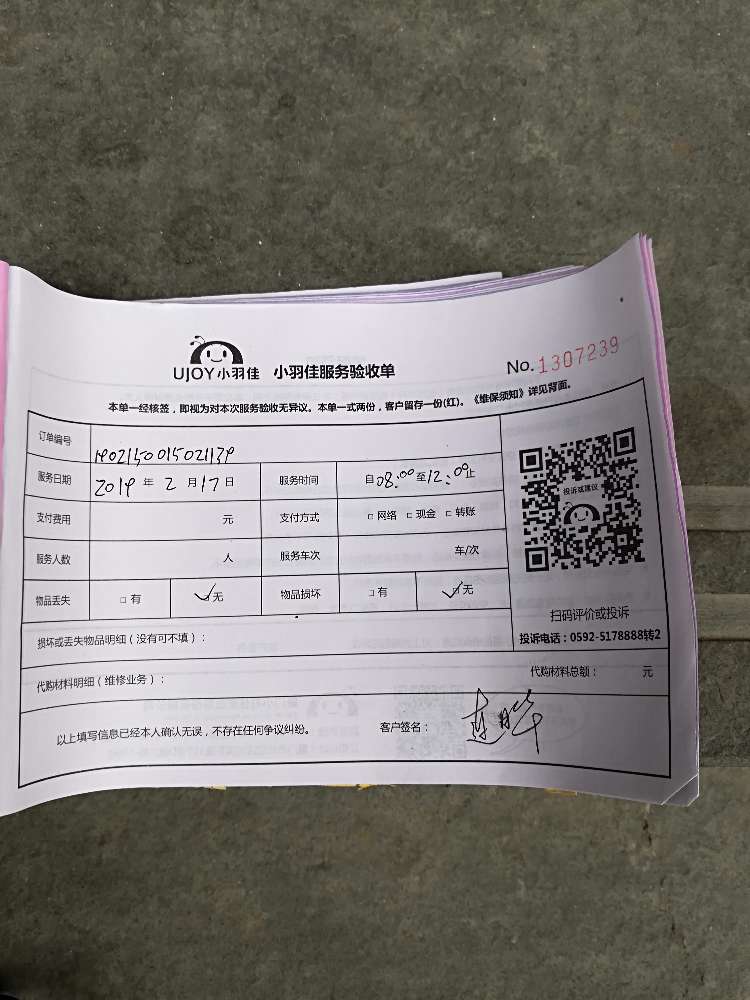 UJOY小羽佳 小羽佳服务验收单 No.1307239
本单一经核签，即视为对本次服务验收无异议。本单一式两份，客户留存一份(红)。《维保须知》详见背面。
订单编号 1902150015021139
服务日期 2019年2月17日 服务时间 自08:00至12:00止
支付费用 元 支付方式 □网络 □现金 □转账
服务人数 人 服务车次 车/次
物品丢失 □有 ✓无 物品损坏 □有 ✓无
投诉或建议
扫码评价或投诉
投诉电话：0592-5178888转2
损坏或丢失物品明细（没有可不填）：
代购材料明细（维修业务）： 代购材料总额： 元
以上填写信息已经本人确认无误，不存在任何争议纠纷。 客户签名：